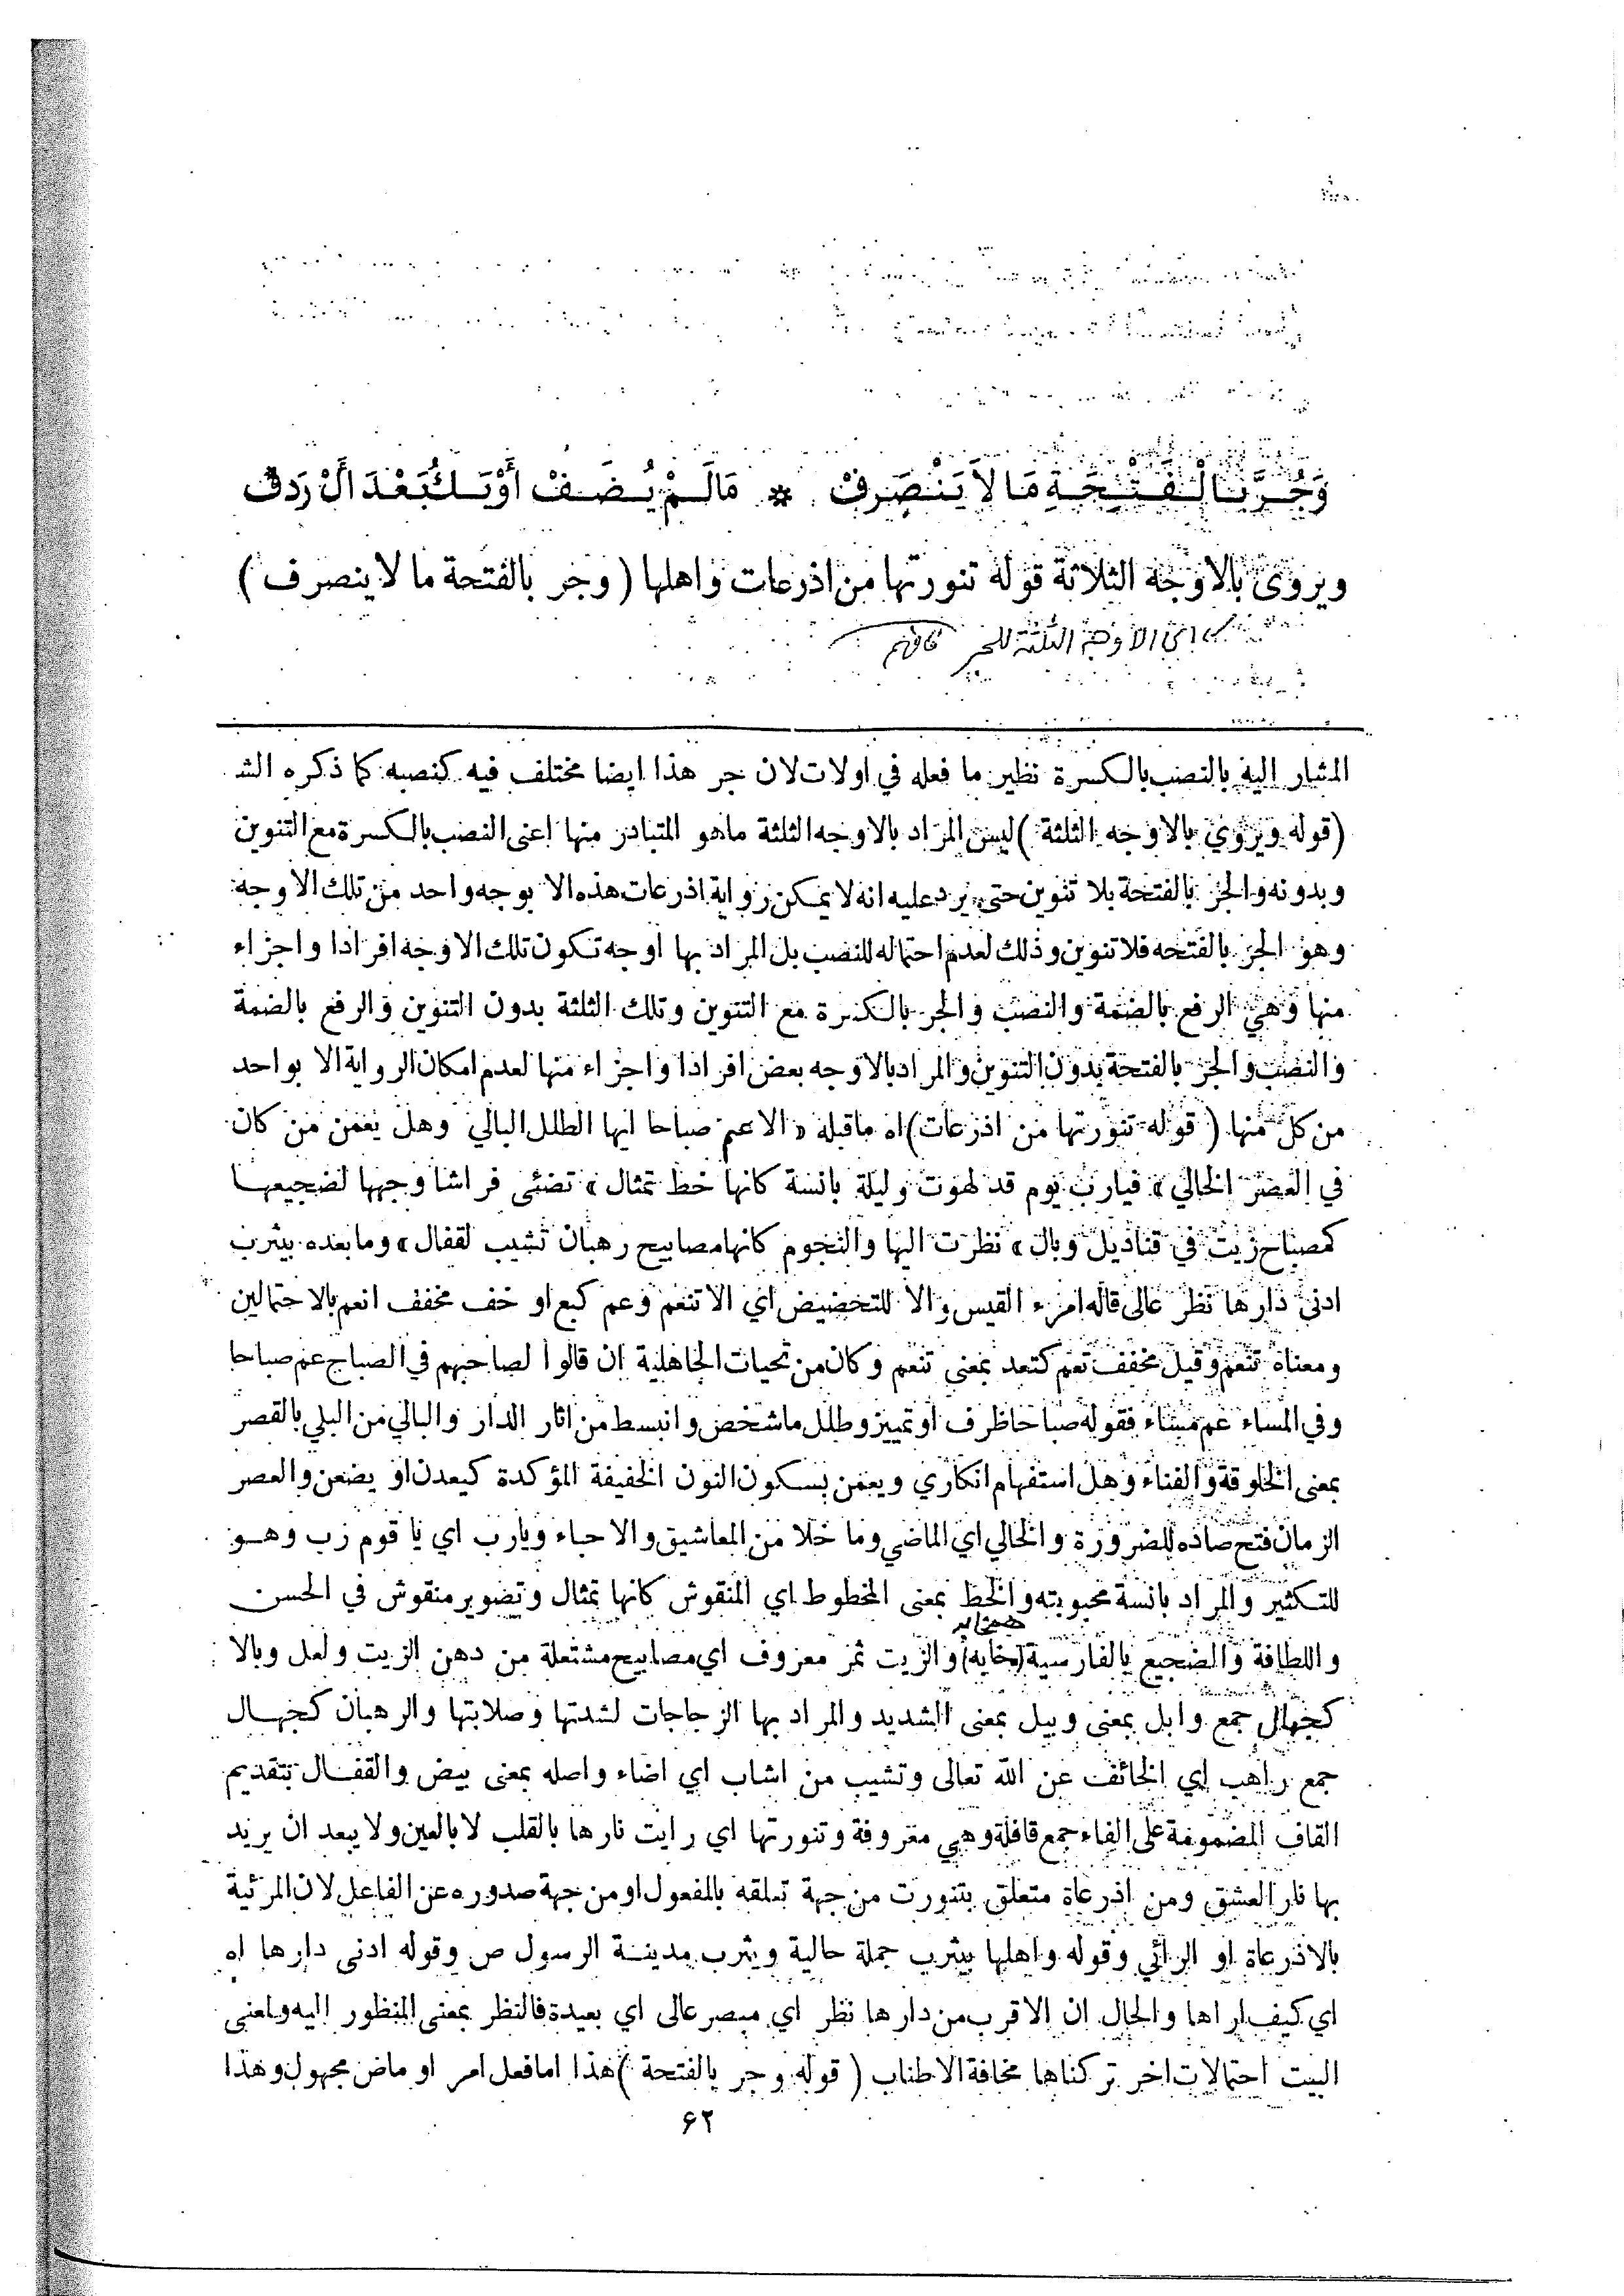 وَجُرَّ بِالْفَتْحَةِ مَا لاَ يَنْصَرِفْ * مَا لَمْ يُضَفْ أَوْ يَكُ بَعْدَ أَلْ رَدِفْ
ويروى بالاوجه الثلاثة قوله تنورتها من اذرعات واهلها ( وجر بالفتحة ما لا ينصرف )
اي الاوجه الثلثة للجر فافهم
المشار اليه بالنصب بالكسرة نظير ما فعله في اولات لان جر هذا ايضا مختلف فيه كنصبه كما ذكره الشـ
( قوله ويروي بالاوجه الثلثة ) ليس المراد بالاوجه الثلثة ماهو المتبادر منها اعنى النصب بالكسرة مع التنوين
وبدونه والجر بالفتحة بلا تنوين حتى يرد عليه انه لا يمكن رواية اذرعات هذه الا بوجه واحد من تلك الاوجه
وهو الجر بالفتحه فلا تنوين وذلك لعدم احتماله للنصب بل المراد بها اوجه تكون تلك الاوجه افرادا واجزاء
منها وهي الرفع بالضمة والنصب والجر بالكسرة مع التنوين وتلك الثلثة بدون التنوين والرفع بالضمة
والنصب والجر بالفتحة بدون التنوين والمراد بالاوجه بعض افرادا واجزاء منها لعدم امكان الرواية الا بواحد
من كل منها ( قوله تنورتها من اذرعات ) اه ماقبله « الا عم صباحا ايها الطلل البالي وهل يعمن من كان
في العصر الخالي » فيارب يوم قد لهوت وليلة بانسة كانها خط تمثال » تضئى فراشا وجهها لضجيعها
كمصباح زيت في قناديل وبال » نظرت اليها والنجوم كانها مصابيح رهبان تشيب لقفال » وما بعده بيثرب
ادنى دارها نظر عالى قاله امرء القيس والا للتحضيض اي الا تنعم وعم كبع او خف مخفف انعم بالاحتمالين
ومعناه تنعم وقيل مخفف تعم كتعد بمعنى تنعم وكان من تحيات الجاهلية ان قالوا لصاحبهم في الصباح عم صباحا
وفي المساء عم مساء فقوله صباحا ظرف او تمييز وطلل ما شخص وانبسط من اثار الدار والبالي من البلي بالقصر
بمعنى الخلوقة والفناء وهل استفهام انكاري ويعمن بسكون النون الخفيفة المؤكدة كيعدن او يضعن والعصر
الزمان فتح صاده للضرورة والخالي اي الماضي وما خلا من المعاشيق والاحباء ويارب اي يا قوم رب وهو
للتكثير والمراد بانسة محبوبته والخط بمعنى المخطوط اي المنقوش كانها تمثال وتصوير منقوش في الحسن
واللطافة والضجيع بالفارسية والزيت ثمر معروف اي مصابيح مشتعلة من دهن الزيت ولعل وبالا
كجهال جمع وابل بمعنى وبيل بمعنى الشديد والمراد بها الزجاجات لشدتها وصلابتها والرهبان كجهال
جمع راهب اي الخائف عن الله تعالى وتشيب من اشاب اي اضاء واصله بمعنى بيض والقفال بتقديم
القاف المضمومة على الفاء جمع قافلة وهي معروفة وتنورتها اي رايت نارها بالقلب لا بالعين ولا يبعد ان يريد
بها نار العشق ومن اذرعاة متعلق بتنورت من جهة تعلقه بالمفعول او من جهة صدوره عن الفاعل لان المرئية
بالاذرعاة او الرائي وقوله واهلها بيثرب جملة حالية ويثرب مدينة الرسول ص وقوله ادنى دارها اه
اي كيف اراها والحال ان الاقرب من دارها نظر اي مبصر عالى اي بعيدة فالنظر بمعنى المنظور اليه ولمعنى
البيت احتمالات اخر تركناها مخافة الاطناب ( قوله وجر بالفتحة ) هذا اما فعل امر او ماض مجهول وهذا
۶۲